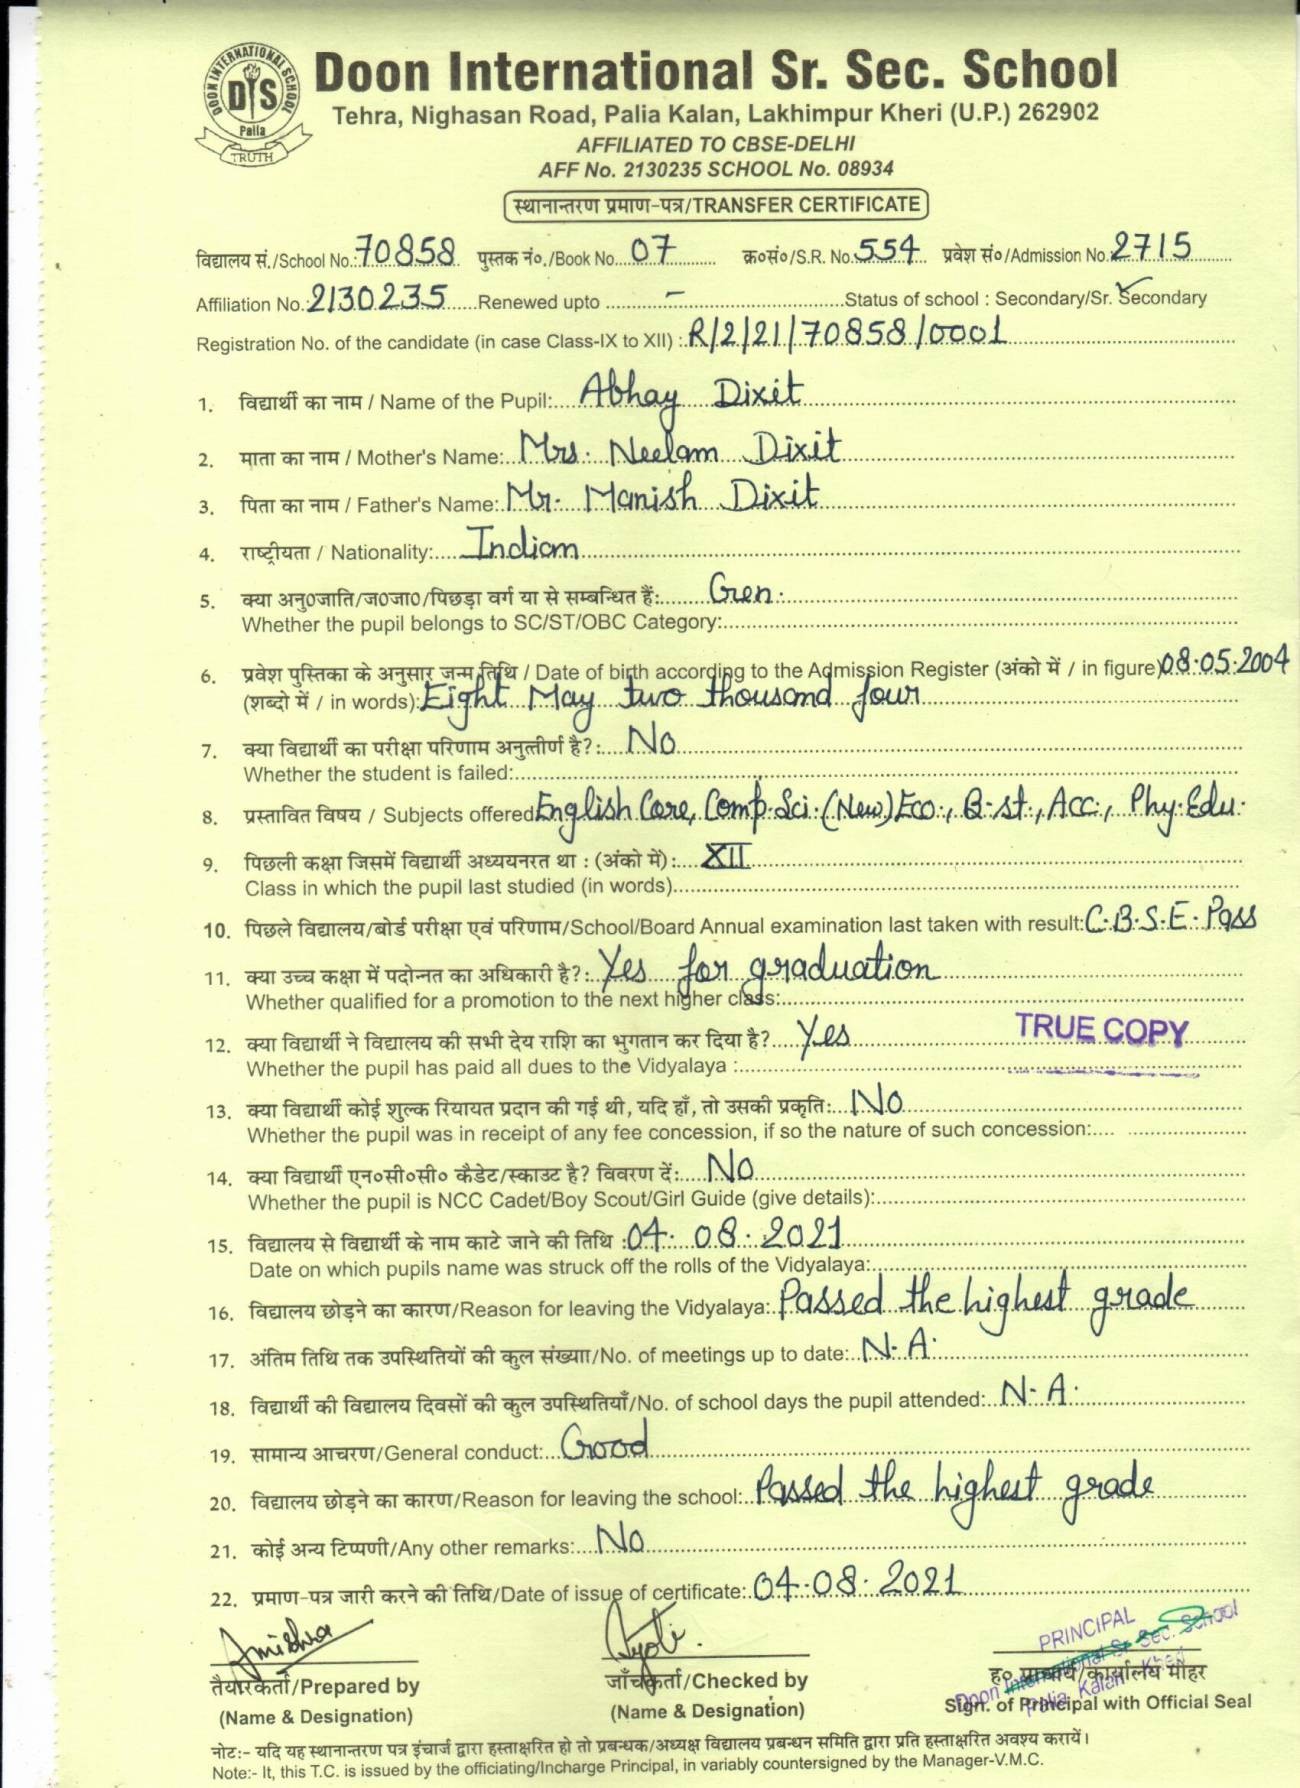 DOON INTERNATIONAL SCHOOL
DIS
Palia
TRUTH
Doon International Sr. Sec. School
Tehra, Nighasan Road, Palia Kalan, Lakhimpur Kheri (U.P.) 262902
AFFILIATED TO CBSE-DELHI
AFF No. 2130235 SCHOOL No. 08934
स्थानान्तरण प्रमाण-पत्र/TRANSFER CERTIFICATE
विद्यालय सं./School No.: 70858 पुस्तक नं०./Book No. 07 क्र०सं०/S.R. No. 554 प्रवेश सं०/Admission No. 2715
Affiliation No. 2130235 Renewed upto - Status of school : Secondary/Sr. Secondary
Registration No. of the candidate (in case Class-IX to XII) : R/2/21/70858/0001
1. विद्यार्थी का नाम / Name of the Pupil: Abhay Dixit
2. माता का नाम / Mother's Name: Mrs. Neelam Dixit
3. पिता का नाम / Father's Name: Mr. Manish Dixit
4. राष्ट्रीयता / Nationality: Indian
5. क्या अनु०जाति/ज०जा०/पिछड़ा वर्ग या से सम्बन्धित हैं: Gen.
Whether the pupil belongs to SC/ST/OBC Category:
6. प्रवेश पुस्तिका के अनुसार जन्म तिथि / Date of birth according to the Admission Register (अंको में / in figure) 08.05.2004
(शब्दो में / in words): Eight May two thousand four
7. क्या विद्यार्थी का परीक्षा परिणाम अनुत्तीर्ण है?: No
Whether the student is failed:
8. प्रस्तावित विषय / Subjects offered English Core, Comp.Sci.(New) Eco., B.st., Acc., Phy.Edu.
9. पिछली कक्षा जिसमें विद्यार्थी अध्ययनरत था : (अंको में): XII
Class in which the pupil last studied (in words)
10. पिछले विद्यालय/बोर्ड परीक्षा एवं परिणाम/School/Board Annual examination last taken with result: C.B.S.E. Pass
11. क्या उच्च कक्षा में पदोन्नत का अधिकारी है?: Yes for graduation
Whether qualified for a promotion to the next higher class:
12. क्या विद्यार्थी ने विद्यालय की सभी देय राशि का भुगतान कर दिया है? Yes
TRUE COPY
Whether the pupil has paid all dues to the Vidyalaya :
13. क्या विद्यार्थी कोई शुल्क रियायत प्रदान की गई थी, यदि हाँ, तो उसकी प्रकृति: No
Whether the pupil was in receipt of any fee concession, if so the nature of such concession:
14. क्या विद्यार्थी एन०सी०सी० कैडेट/स्काउट है? विवरण दें: No
Whether the pupil is NCC Cadet/Boy Scout/Girl Guide (give details):
15. विद्यालय से विद्यार्थी के नाम काटे जाने की तिथि : 04. 08. 2021
Date on which pupils name was struck off the rolls of the Vidyalaya:
16. विद्यालय छोड़ने का कारण/Reason for leaving the Vidyalaya: Passed the highest grade
17. अंतिम तिथि तक उपस्थितियों की कुल संख्याा/No. of meetings up to date: N.A.
18. विद्यार्थी की विद्यालय दिवसों की कुल उपस्थितियाँ/No. of school days the pupil attended: N.A.
19. सामान्य आचरण/General conduct: Good
20. विद्यालय छोड़ने का कारण/Reason for leaving the school: Passed the highest grade
21. कोई अन्य टिप्पणी/Any other remarks: No
22. प्रमाण-पत्र जारी करने की तिथि/Date of issue of certificate: 04.08.2021
Amishra Jyoti
PRINCIPAL
Doon International Sr. Sec. School
Palia Kalan Kheri
तैयारकर्ता/Prepared by जाँचकर्ता/Checked by ह० प्राचार्य/कार्यालय मोहर
(Name & Designation) (Name & Designation) Sign. of Principal with Official Seal
नोट:- यदि यह स्थानान्तरण पत्र इंचार्ज द्वारा हस्ताक्षरित हो तो प्रबन्धक/अध्यक्ष विद्यालय प्रबन्धन समिति द्वारा प्रति हस्ताक्षरित अवश्य करायें।
Note:- It, this T.C. is issued by the officiating/Incharge Principal, in variably countersigned by the Manager-V.M.C.